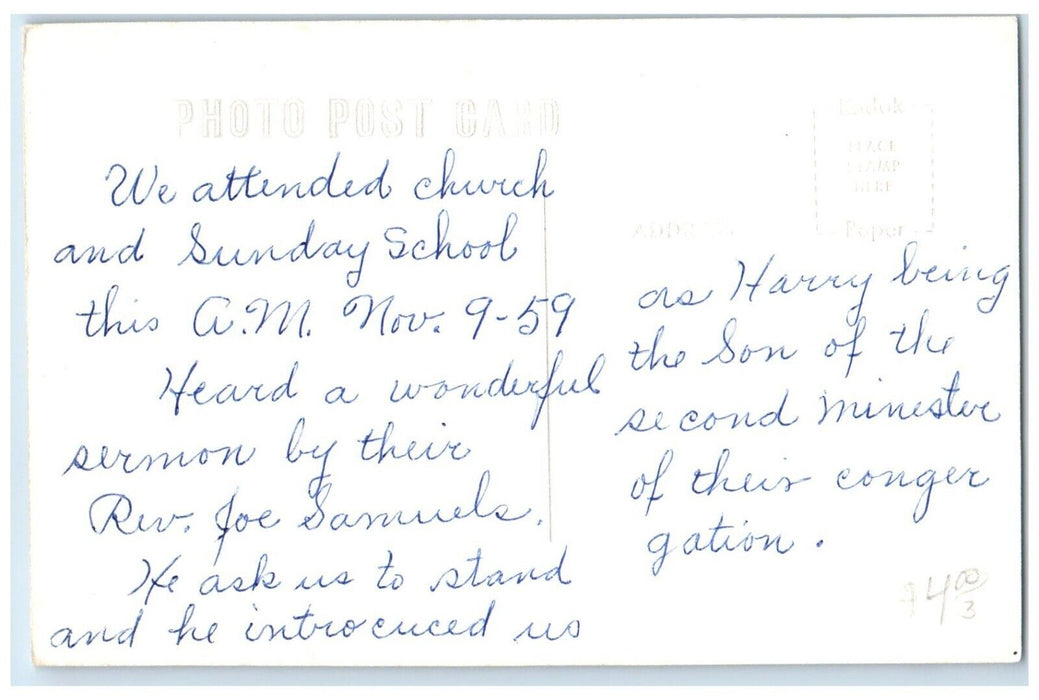 PHOTO POST CARD
Kodak
PLACE
STAMP
HERE
Paper
ADDRESS
We attended church
and Sunday School
this A.M. Nov. 9-59
Heard a wonderful
sermon by their
Rev. Joe Samuels.
He ask us to stand
and he introcuced us
as Harry being
the Son of the
second minester
of their conger
gation.
$4 00
3